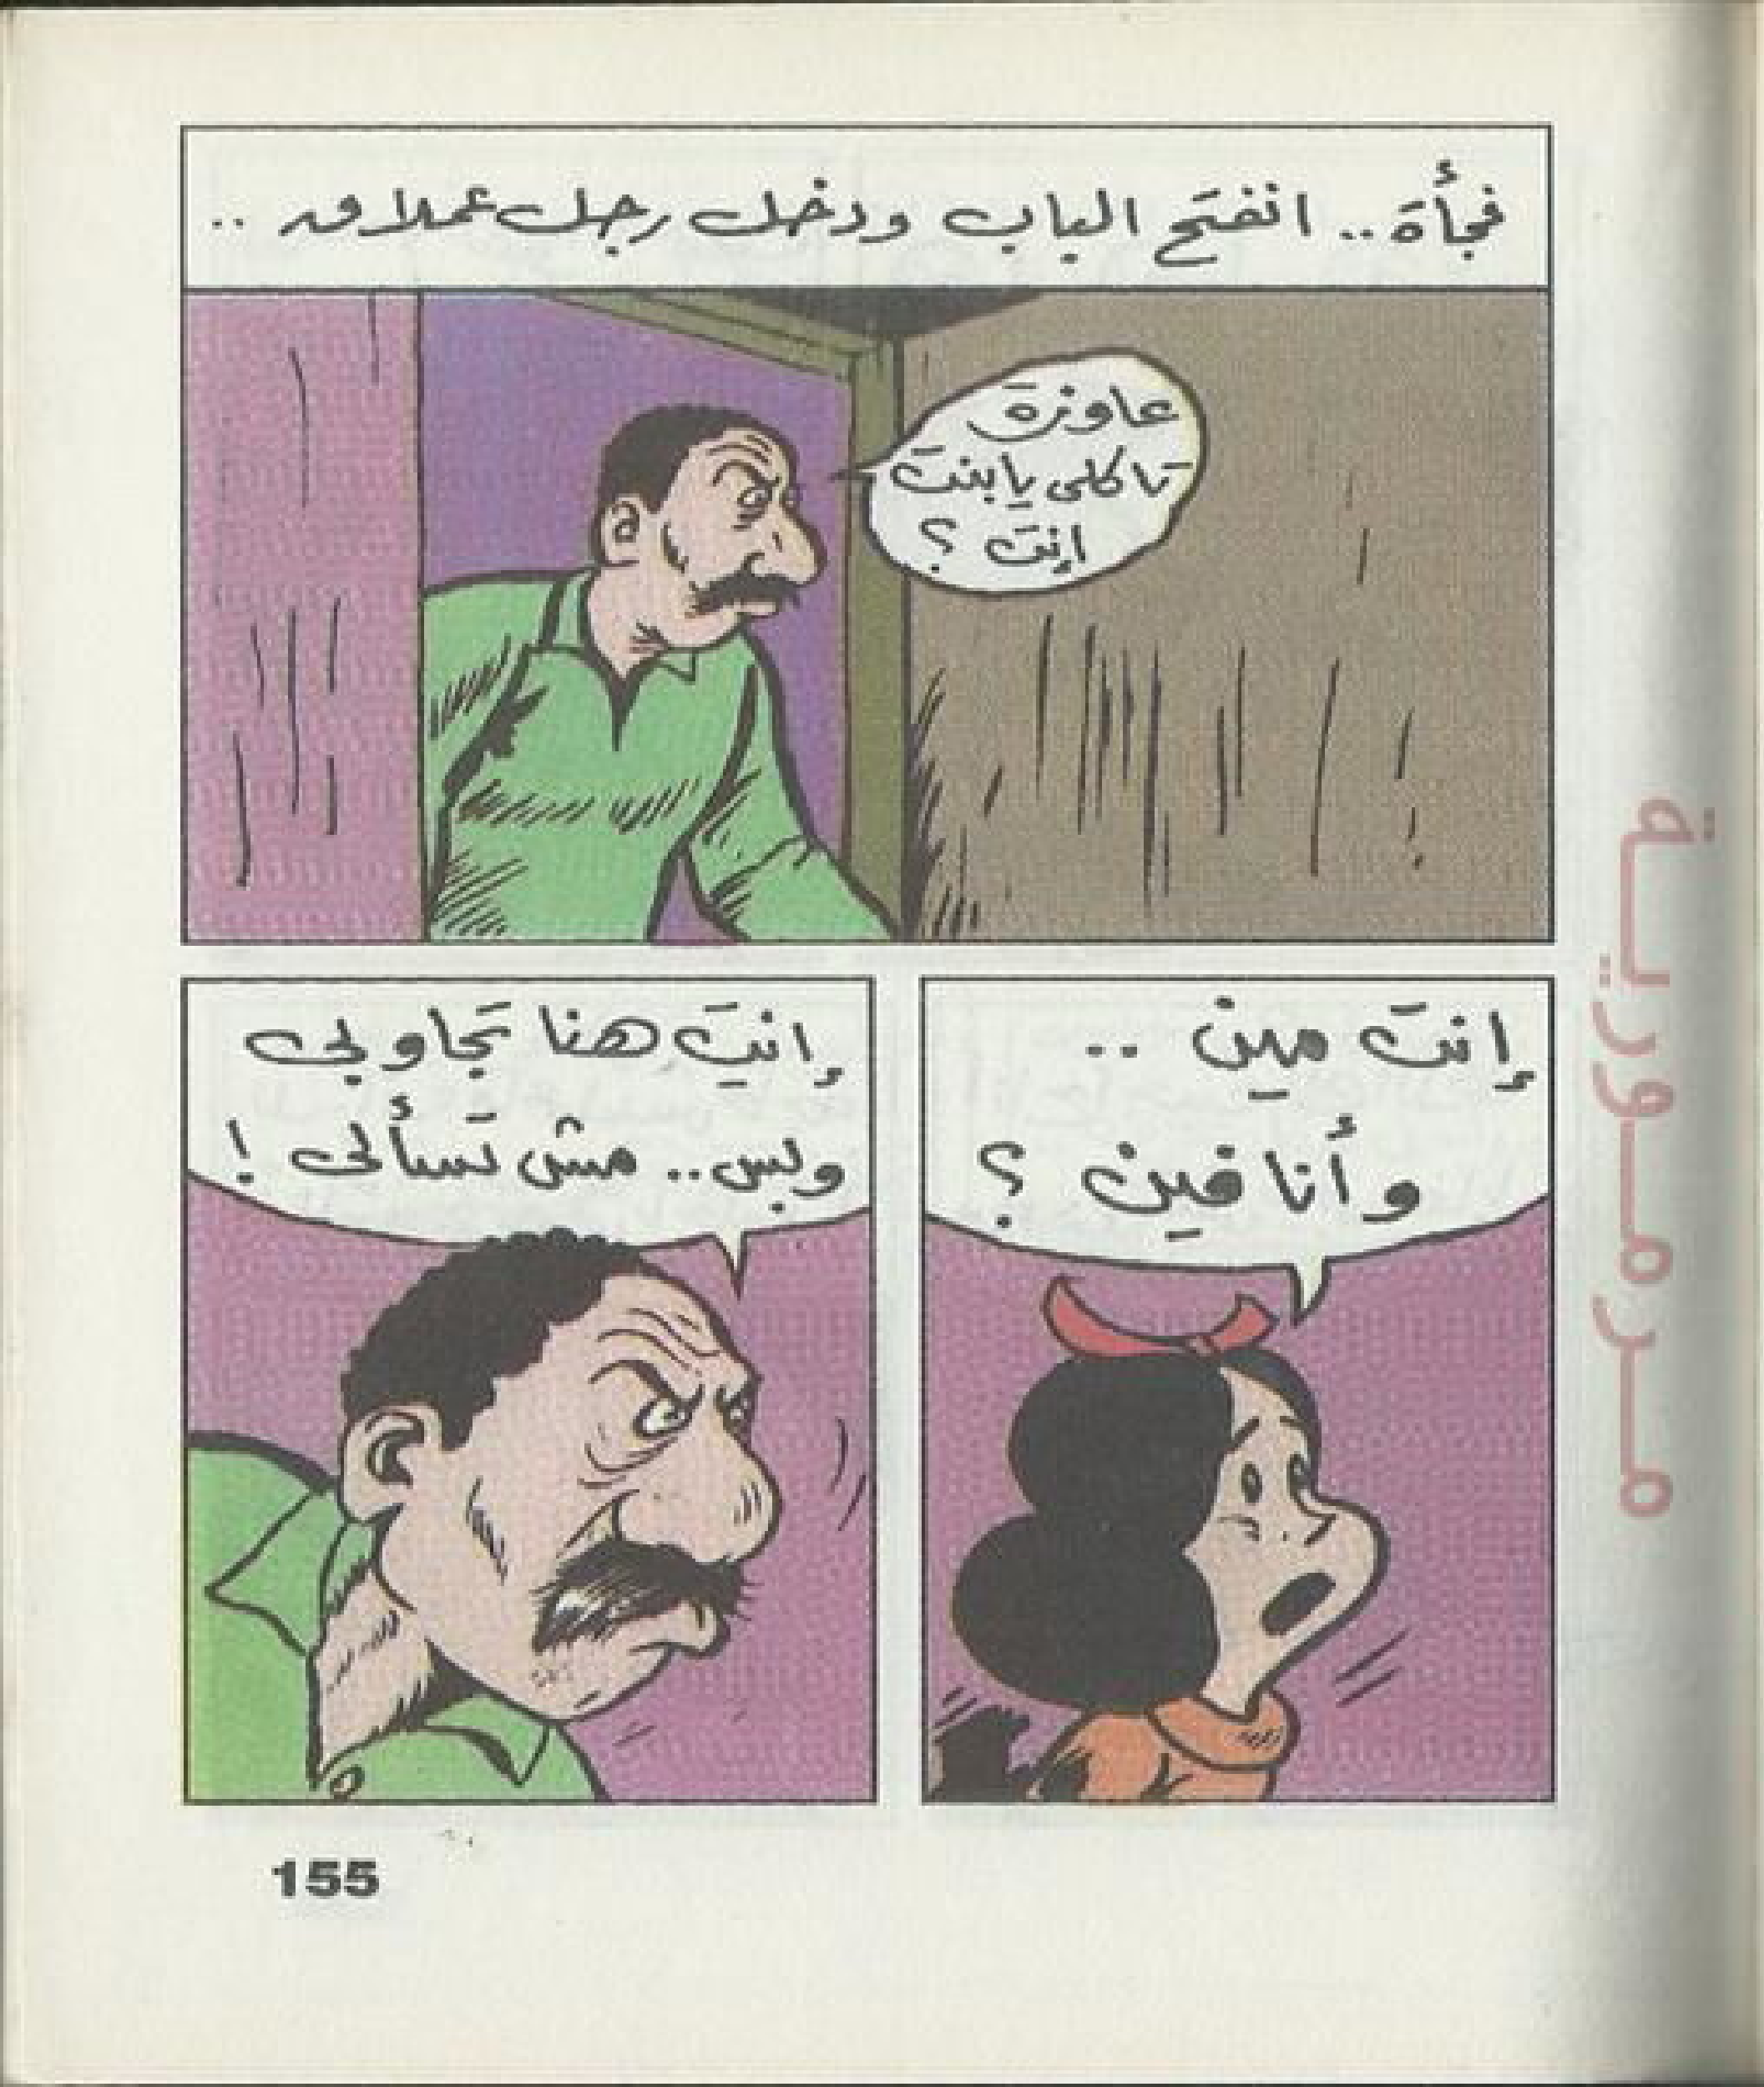 فجأة.. انفتح الباب ودخل رجل عملاق ..
عاوزة
تاكلى يابنت
إنت ؟
إنت مين ..
وأنا فين ؟
إنتِ هنا تجاوبى
وبس.. مش تسألى !
155
مرمورية